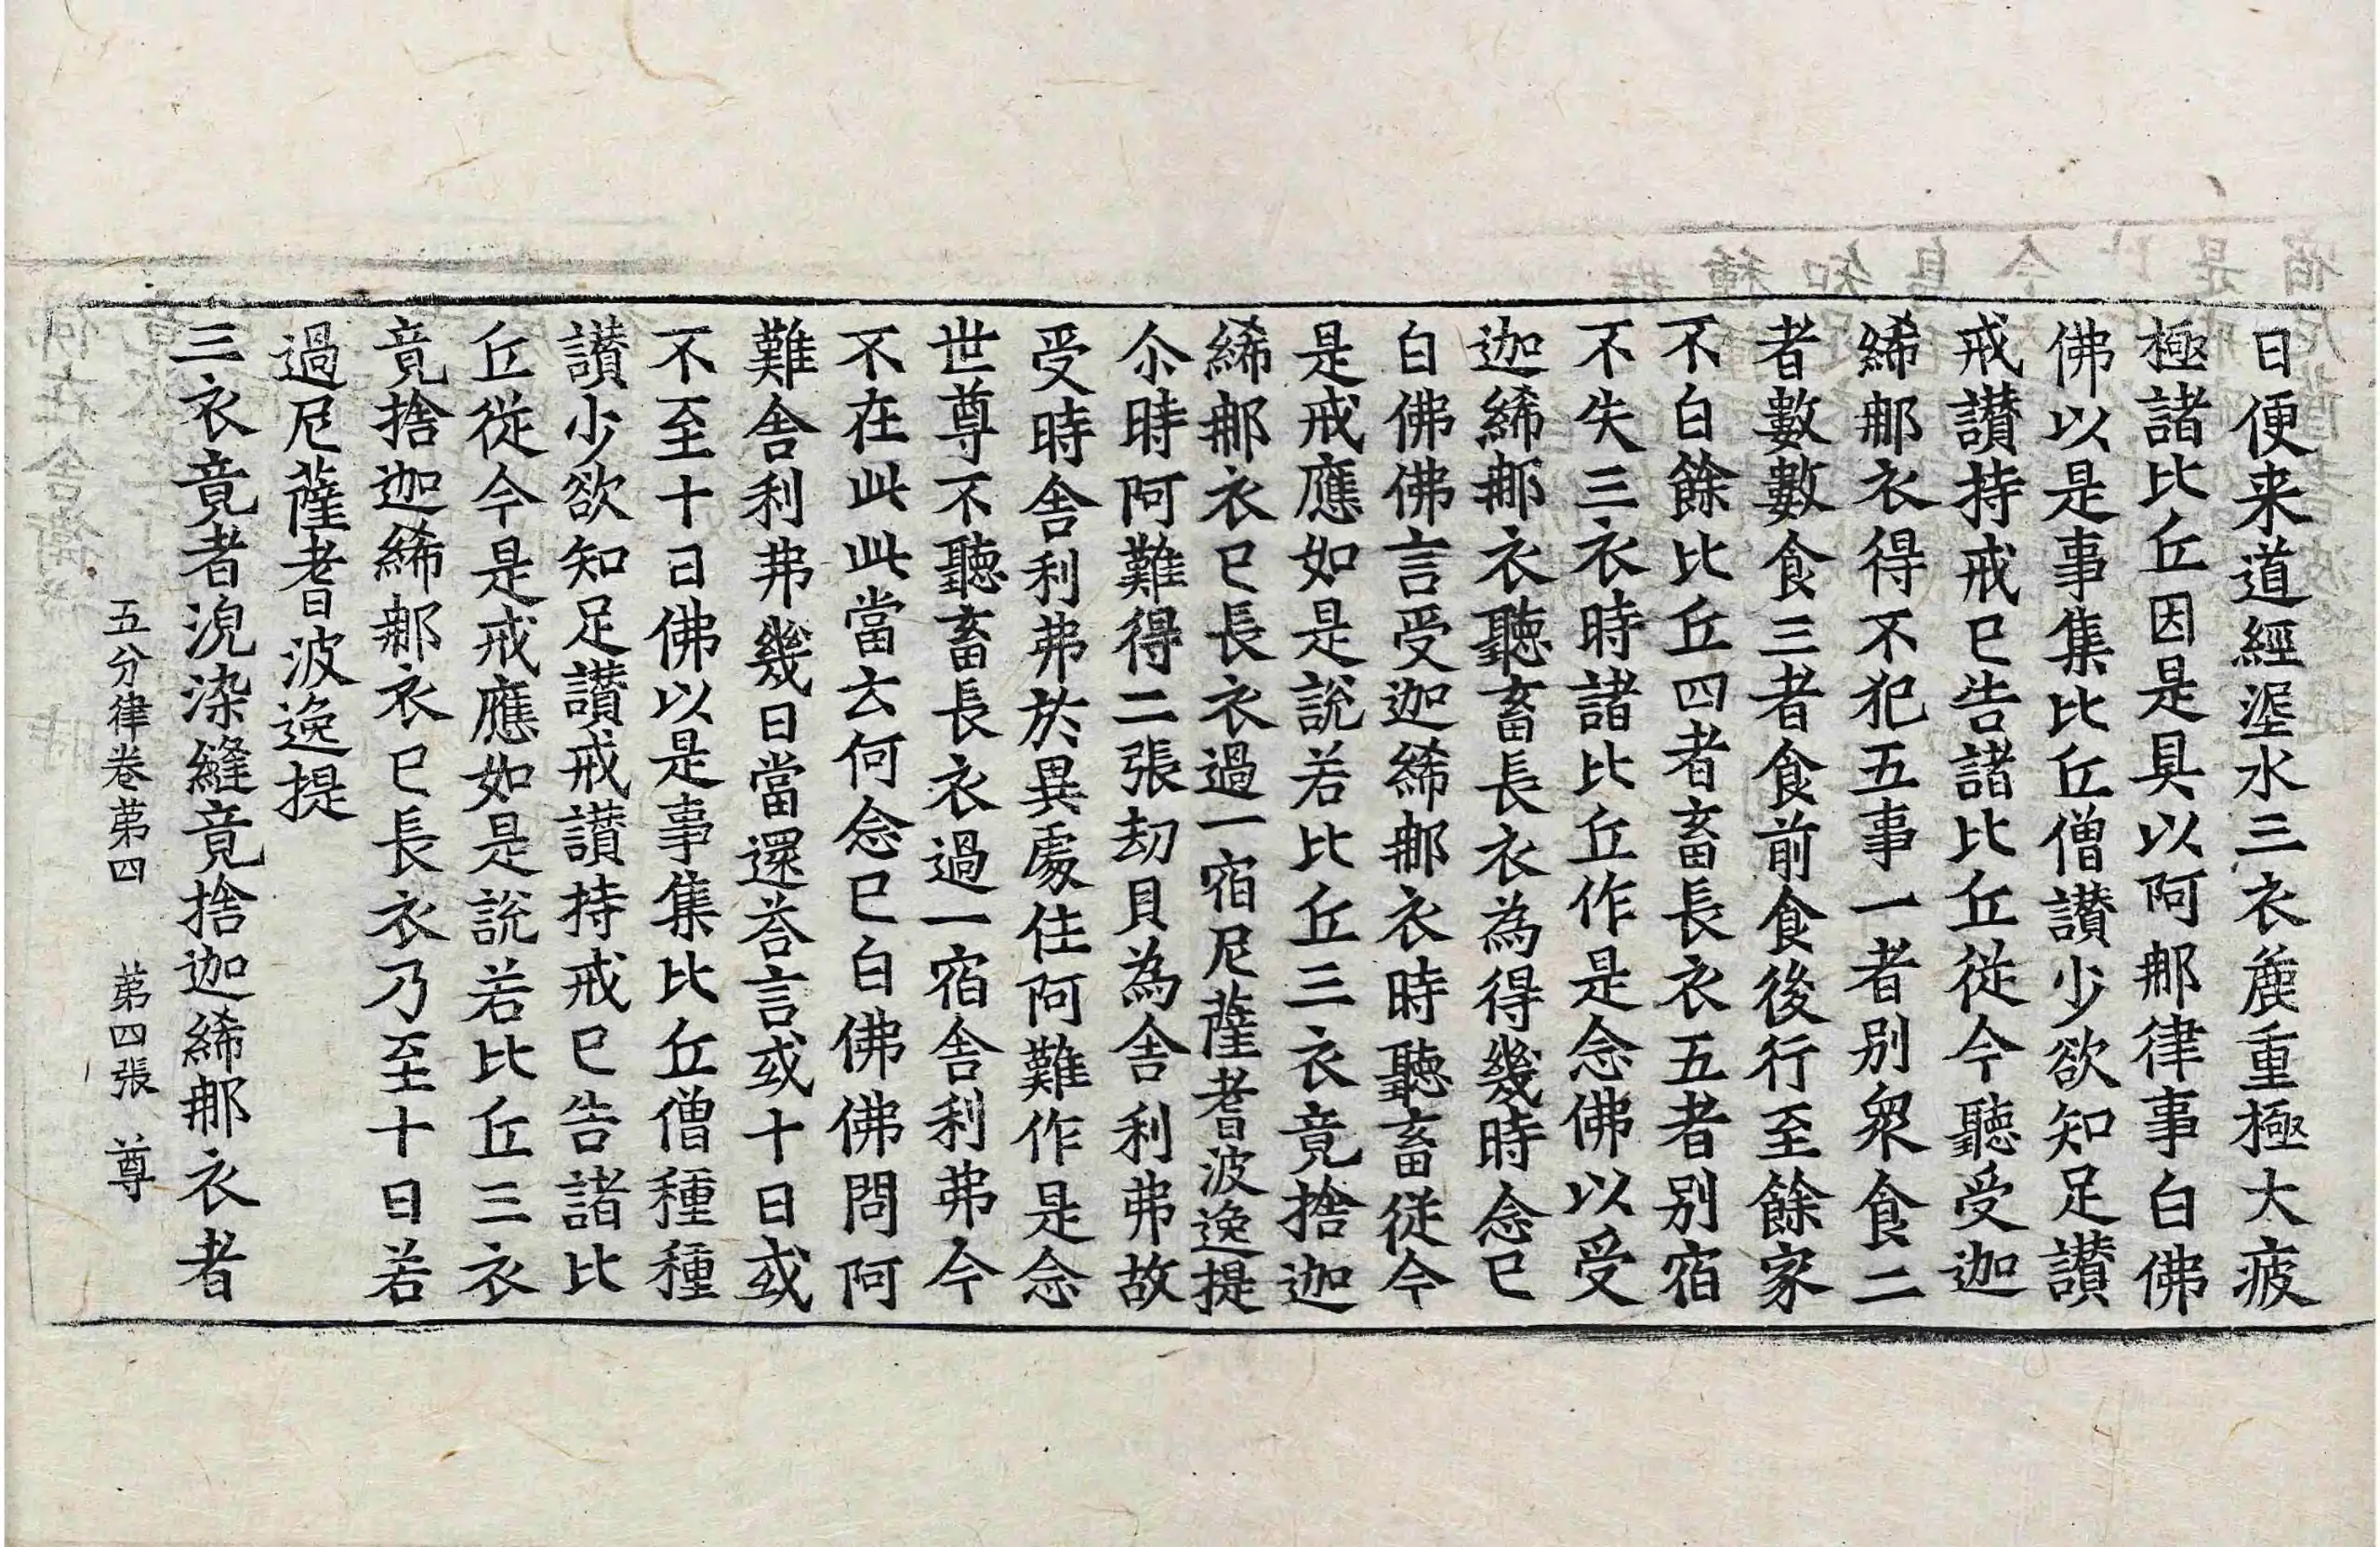 日便来道經渥水三衣麁重極大疲
極諸比丘因是具以阿那律事白佛
佛以是事集比丘僧讃少欲知足讃
戒讃持戒已告諸比丘從今聽受迦
絺那衣得不犯五事一者别衆食二
者數數食三者食前食後行至餘家
不白餘比丘四者畜長衣五者别宿
不失三衣時諸比丘作是念佛以受
迦絺那衣聽畜長衣為得幾時念已
白佛佛言受迦絺那衣時聽畜從今
是戒應如是說若比丘三衣竟捨迦
絺那衣已長衣過一宿尼薩耆波逸提
尒時阿難得二張劫貝為舎利弗故
受時舎利弗於異處住阿難作是念
世尊不聽畜長衣過一宿舎利弗今
不在此此當云何念已白佛佛問阿
難舎利弗幾日當還荅言或十日或
不至十日佛以是事集比丘僧種種
讃少欲知足讃戒讃持戒已告諸比
丘從今是戒應如是說若比丘三衣
竟捨迦絺那衣已長衣乃至十日若
過尼薩耆波逸提
三衣竟者浣染縫竟捨迦絺那衣者
五分律卷苐四 苐四張 尊